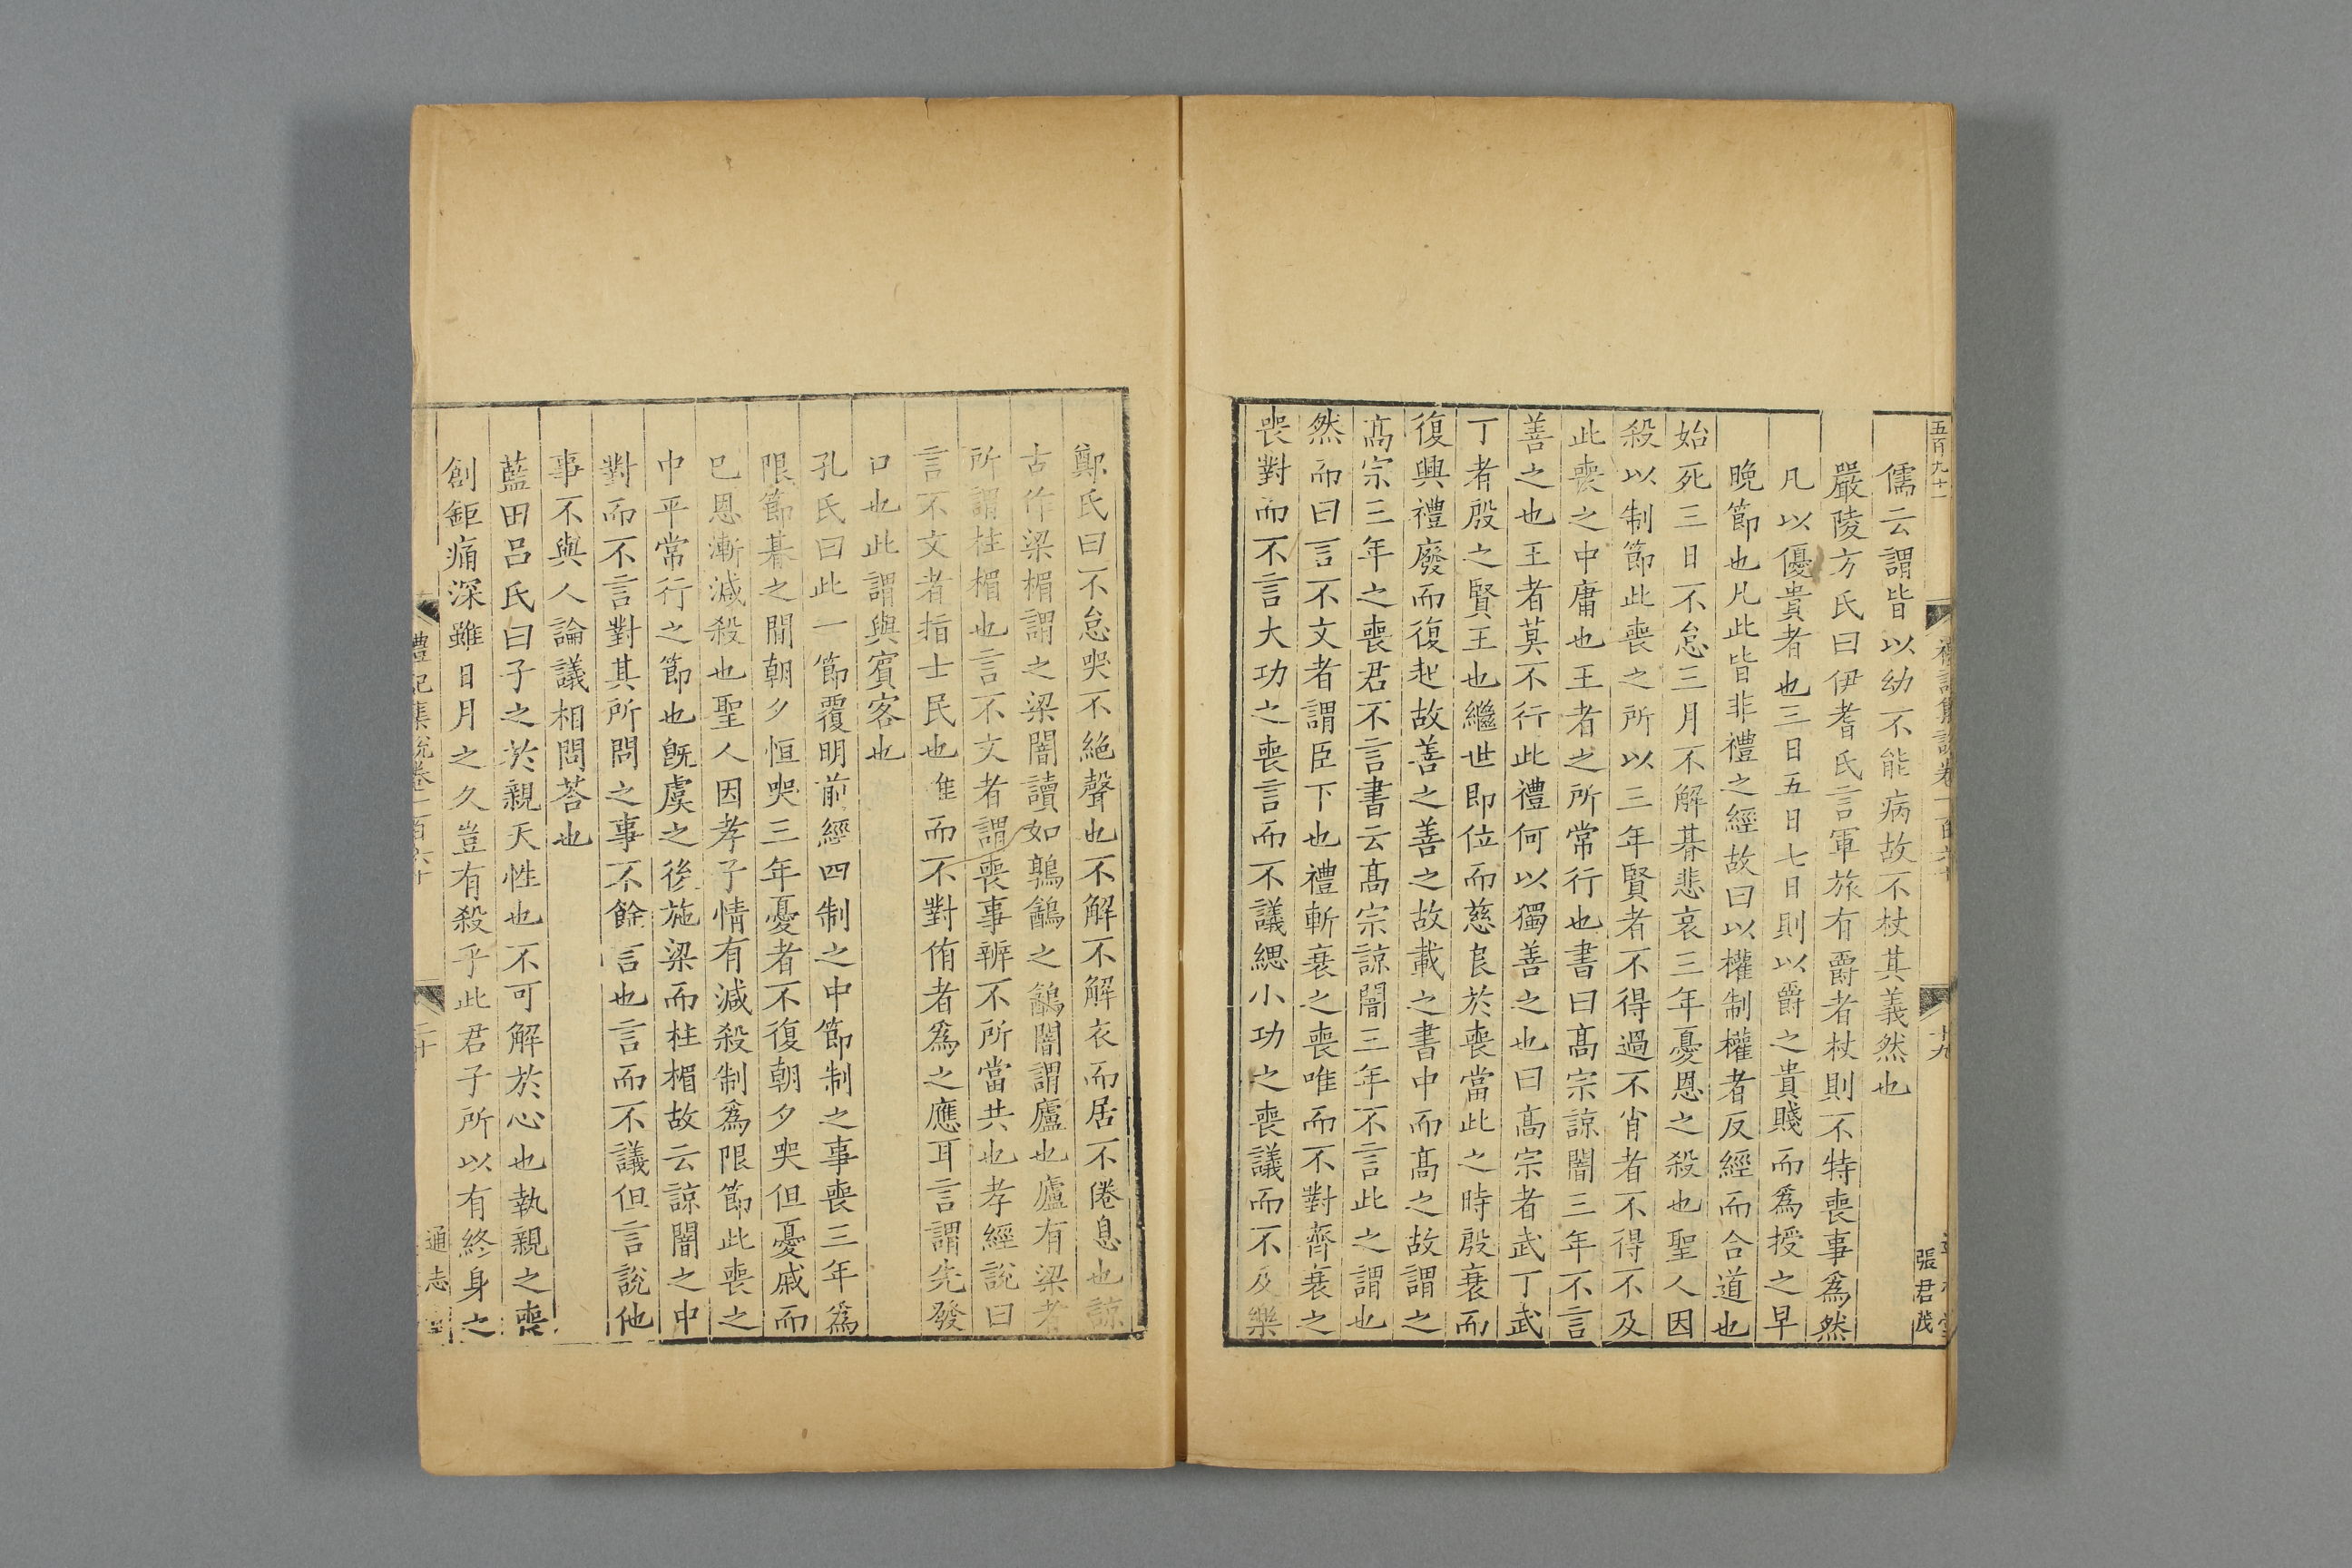 五百九十一
十九
張君茂
儒云謂皆以幼不能病故不杖其義然也
嚴陵方氏曰伊耆氏言軍旅有爵者杖則不特喪事爲然
凡以優貴者也三日五日七日則以爵之貴賤而爲授之早
晚節也凡此皆非禮之經故曰以權制權者反經而合道也
始死三日不怠三月不解朞悲哀三年憂恩之殺也聖人因
殺以制節此喪之所以三年賢者不得過不肖者不得不及
此喪之中庸也王者之所常行也書曰髙宗諒闇三年不言
善之也王者莫不行此禮何以獨善之也曰髙宗者武丁武
丁者殷之賢王也繼世即位而慈良於喪當此之時殷衰而
復興禮廢而復起故善之善之故載之書中而髙之故謂之
髙宗三年之喪君不言書云髙宗諒闇三年不言此之謂也
然而曰言不文者謂臣下也禮斬衰之喪唯而不對齊衰之
喪對而不言大功之喪言而不議緦小功之喪議而不及樂
鄭氏曰不怠哭不絶聲也不解不解衣而居不倦息也諒
古作梁楣謂之梁闇讀如鶉鷂之鷂闇謂廬也廬有梁者
所謂柱楣也言不文者謂喪事辨不所當共也孝經說曰
言不文者指士民也唯而不對侑者爲之應耳言謂先發
口也此謂與賓客也
孔氏曰此一節覆明前經四制之中節制之事喪三年爲
限節朞之間朝夕恒哭三年憂者不復朝夕哭但憂戚而
已恩漸減殺也聖人因孝子情有減殺制爲限節此喪之
中平常行之節也旣虞之後施梁而柱楣故云諒闇之中
對而不言對其所問之事不餘言也言而不議但言說他
事不與人論議相問荅也
藍田呂氏曰子之於親天性也不可解於心也執親之喪
創鉅痛深雖日月之久豈有殺乎此君子所以有終身之
禮記集說卷一百六十
二十
通志